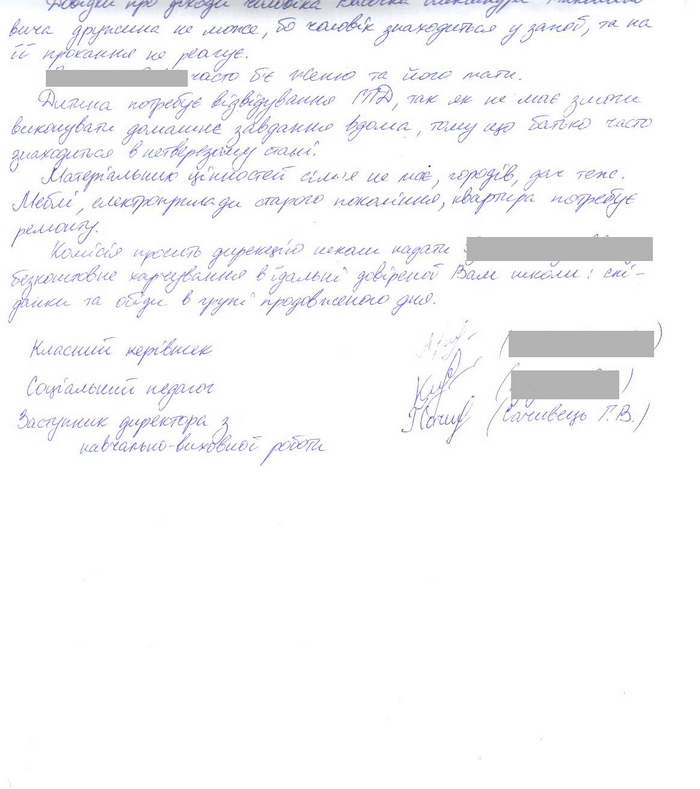 Довідки про доходи чоловіка
вича дружина не може, бо чоловік знаходиться у запої, та на
її прохання не реагує.
часто б'є жінку та його мати.
Дитина потребує відвідування ГПД, так як не має змоги
виконувати домашнє завдання вдома, тому що батько часто
знаходиться в нетверезому стані.
Матеріальних цінностей сім'я не має, городів, дач теж.
Меблі, електроприлади старого покоління, квартира потребує
ремонту.
Комісія просить дирекцію школи надати
безкоштовне харчування в їдальні довіреної Вам школи: сні-
данки та обіди в групі продовженого дня.
Класний керівник
Соціальний педагог
Заступник директора з (Сачивець Г.В.)
навчально-виховної роботи